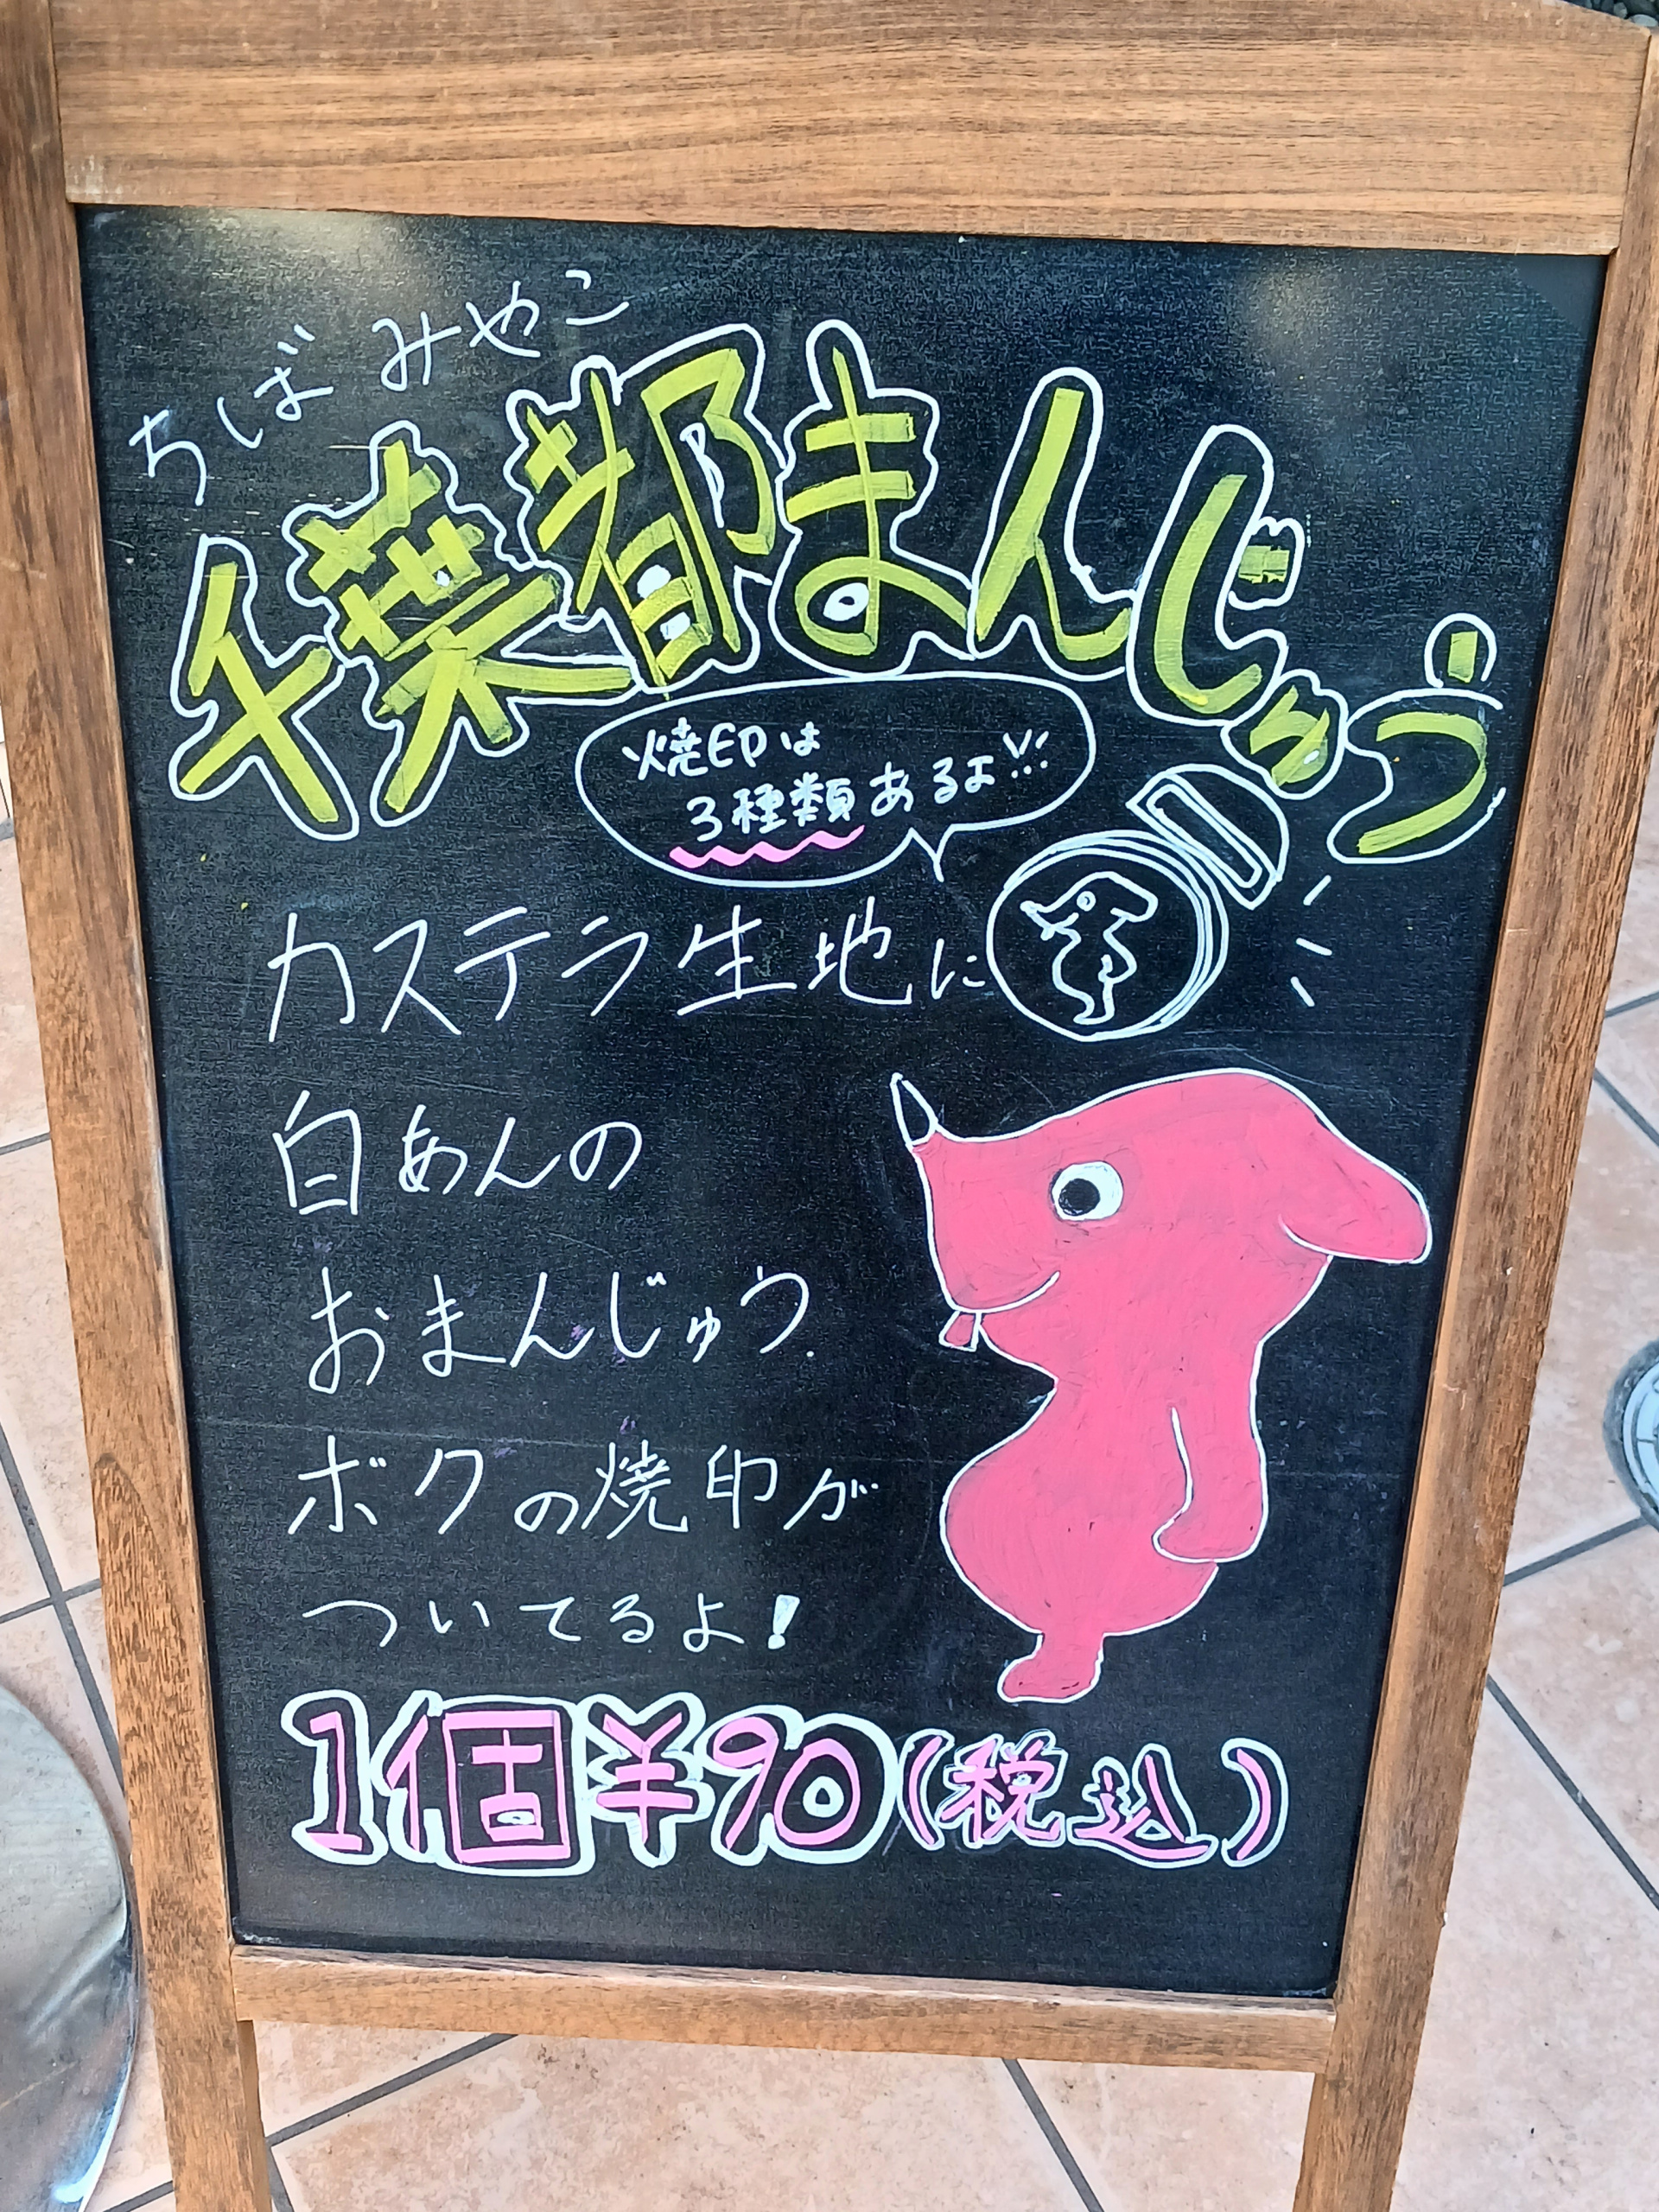 ちばみやこ
千葉都まんじゅう
焼印は
3種類あるよ!!
カステラ生地に
白あんの
おまんじゅう.
ボクの焼印が
ついてるよ!
1個¥90(税込)